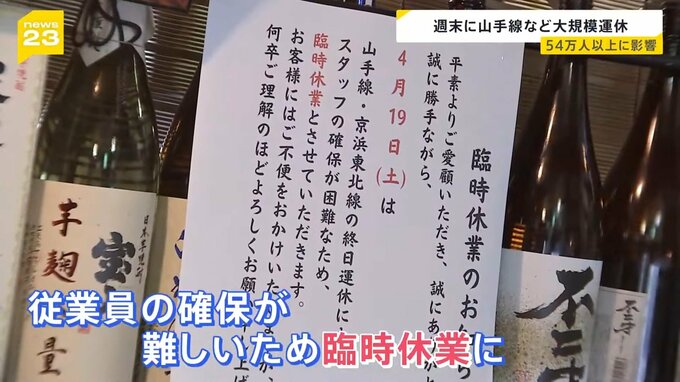 news
23
週末に山手線など大規模運休
54万人以上に影響
臨時休業のお
平素よりご愛顧いただき、誠にあ
誠に勝手ながら、
4月19日(土)は
山手線・京浜東北線の終日運休に
スタッフの確保が困難なため、
臨時休業とさせていただきます。
お客様にはご不便をおかけいた
何卒ご理解のほどよろしくお願
日本芋焼酎
宝
芋麹
量
不二才
不二才
従業員の確保が
難しいため臨時休業に